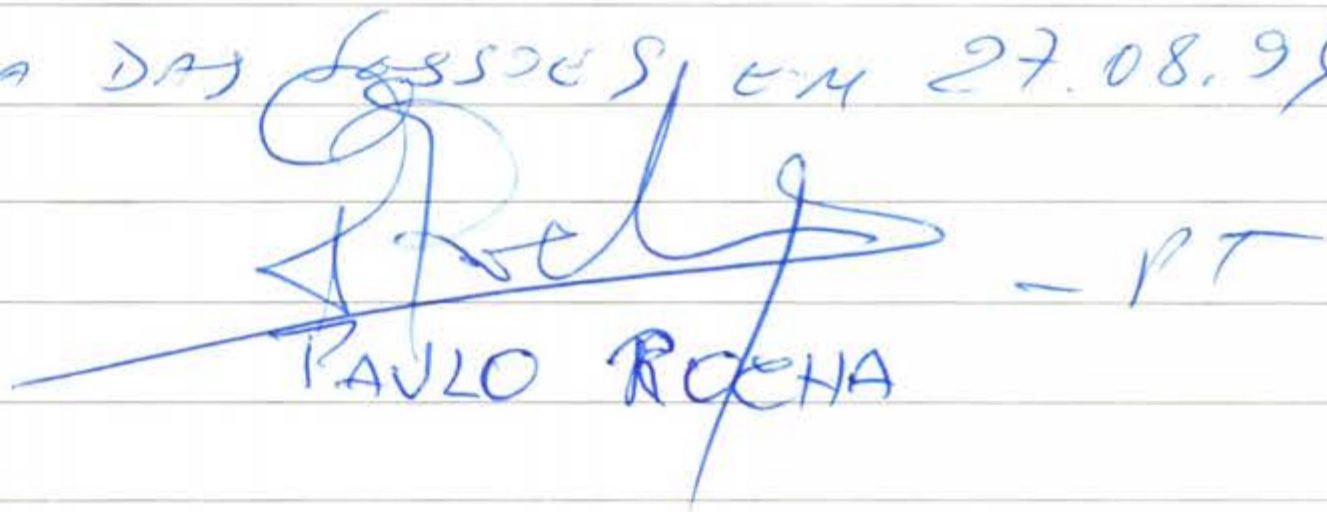 A DAS SESSÕES, EM 27.08.9
- PT
PAULO ROCHA